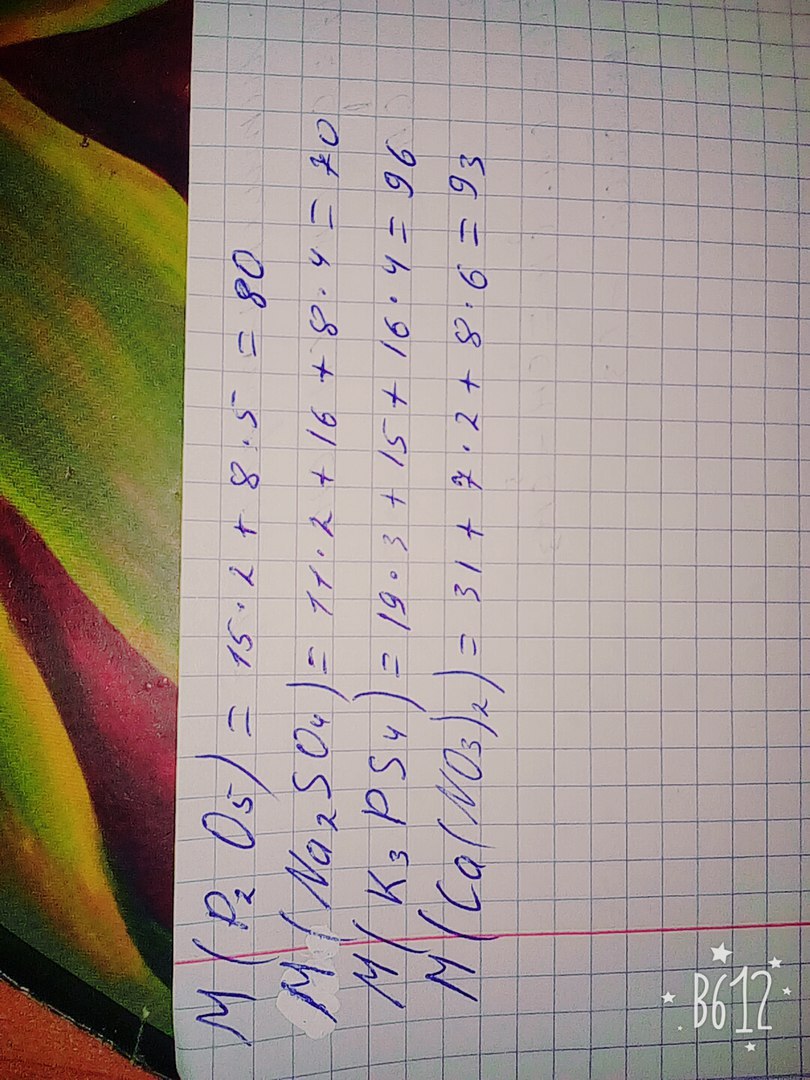 M(P₂O₅) = 15·2 + 8·5 = 80
M(Na₂SO₄) = 11·2 + 16 + 8·4 = 70
M(K₃PS₄) = 19·3 + 15 + 16·4 = 96
M(Ca(NO₃)₂) = 31 + 7·2 + 8·6 = 93
B612